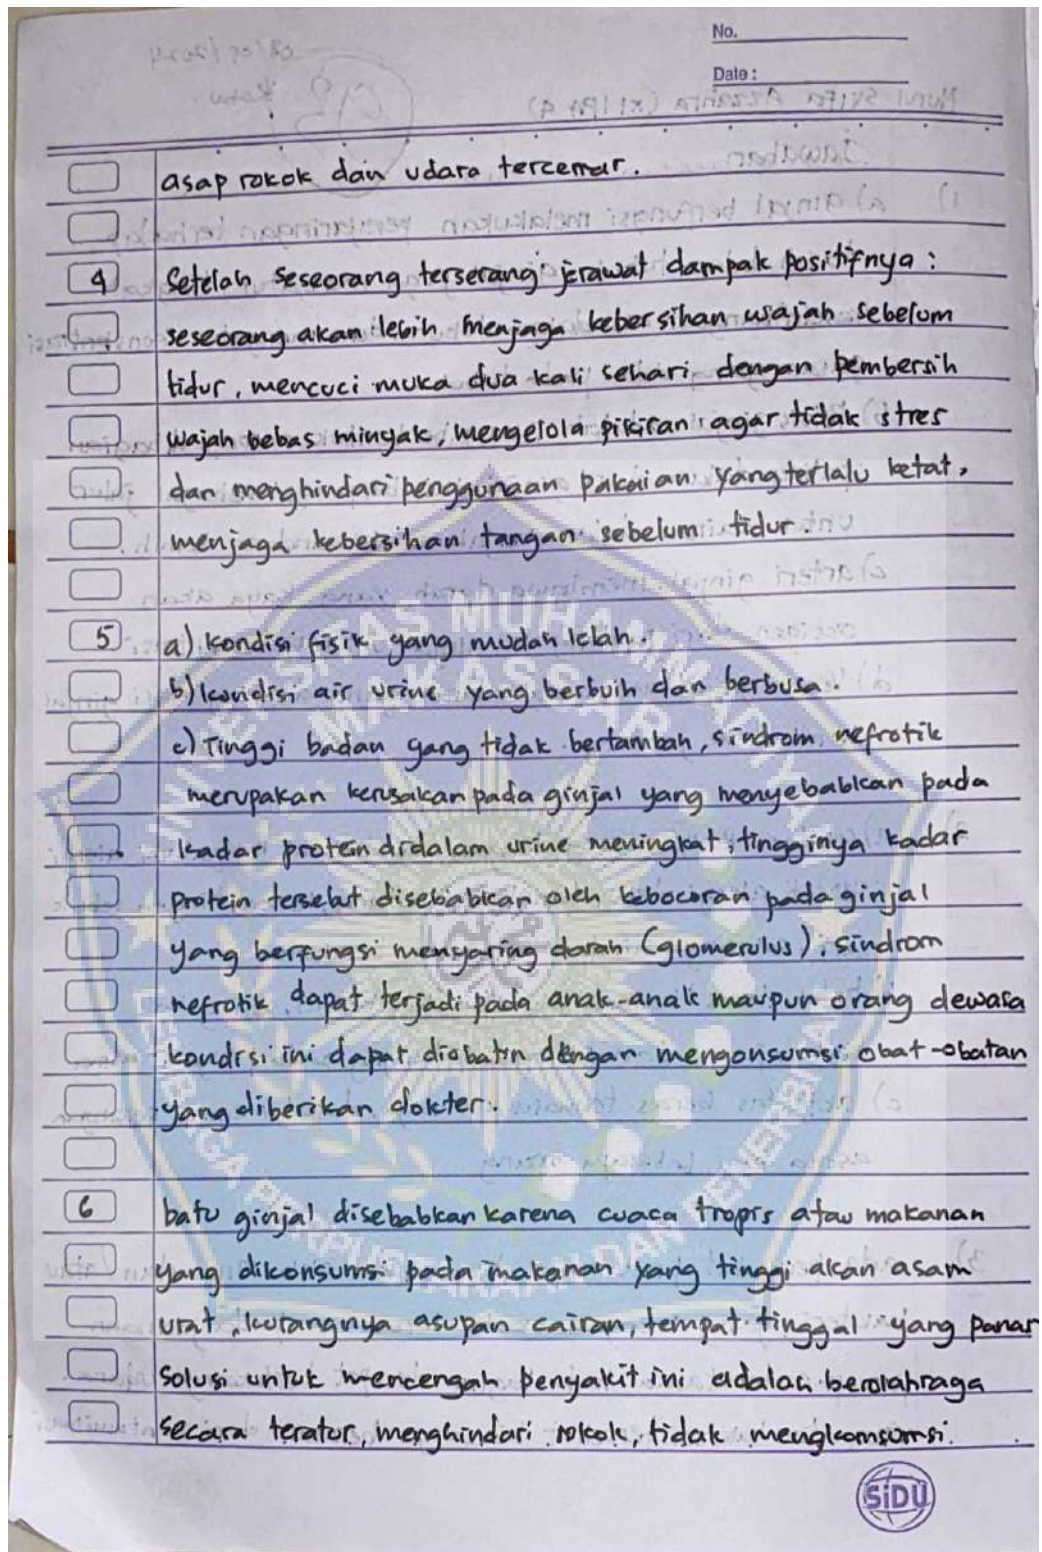 No.
Date :
asap rokok dan udara tercemar.
4 Setelah seseorang terserang jerawat dampak positifnya :
seseorang akan lebih menjaga kebersihan wajah sebelum
tidur, mencuci muka dua kali sehari dengan pembersih
wajah bebas minyak, mengelola pikiran agar tidak stres
dan menghindari penggunaan pakaian yang terlalu ketat,
menjaga kebersihan tangan sebelum tidur.
5 a) kondisi fisik yang mudah lelah.
b) kondisi air urine yang berbuih dan berbusa.
c) Tinggi badan yang tidak bertambah, sindrom nefrotik
merupakan kerusakan pada ginjal yang menyebabkan pada
kadar protein didalam urine meningkat, tingginya kadar
protein tersebut disebabkan oleh kebocoran pada ginjal
yang berfungsi menyaring darah (glomerulus), sindrom
nefrotik dapat terjadi pada anak-anak maupun orang dewasa
kondisi ini dapat diobatin dengan mengonsumsi obat-obatan
yang diberikan dokter.
6 batu ginjal disebabkan karena cuaca tropis atau makanan
yang dikonsumsi pada makanan yang tinggi akan asam
urat, kurangnya asupan cairan, tempat tinggal yang panas
solusi untuk mencengah penyakit ini adalah berolahraga
secara teratur, menghindari rokok, tidak mengkomsumsi.
SiDU
UNIVERSITAS MUHAMMADIYAH
MAKASSAR
LEMBAGA PERPUSTAKAAN DAN PENERBITAN